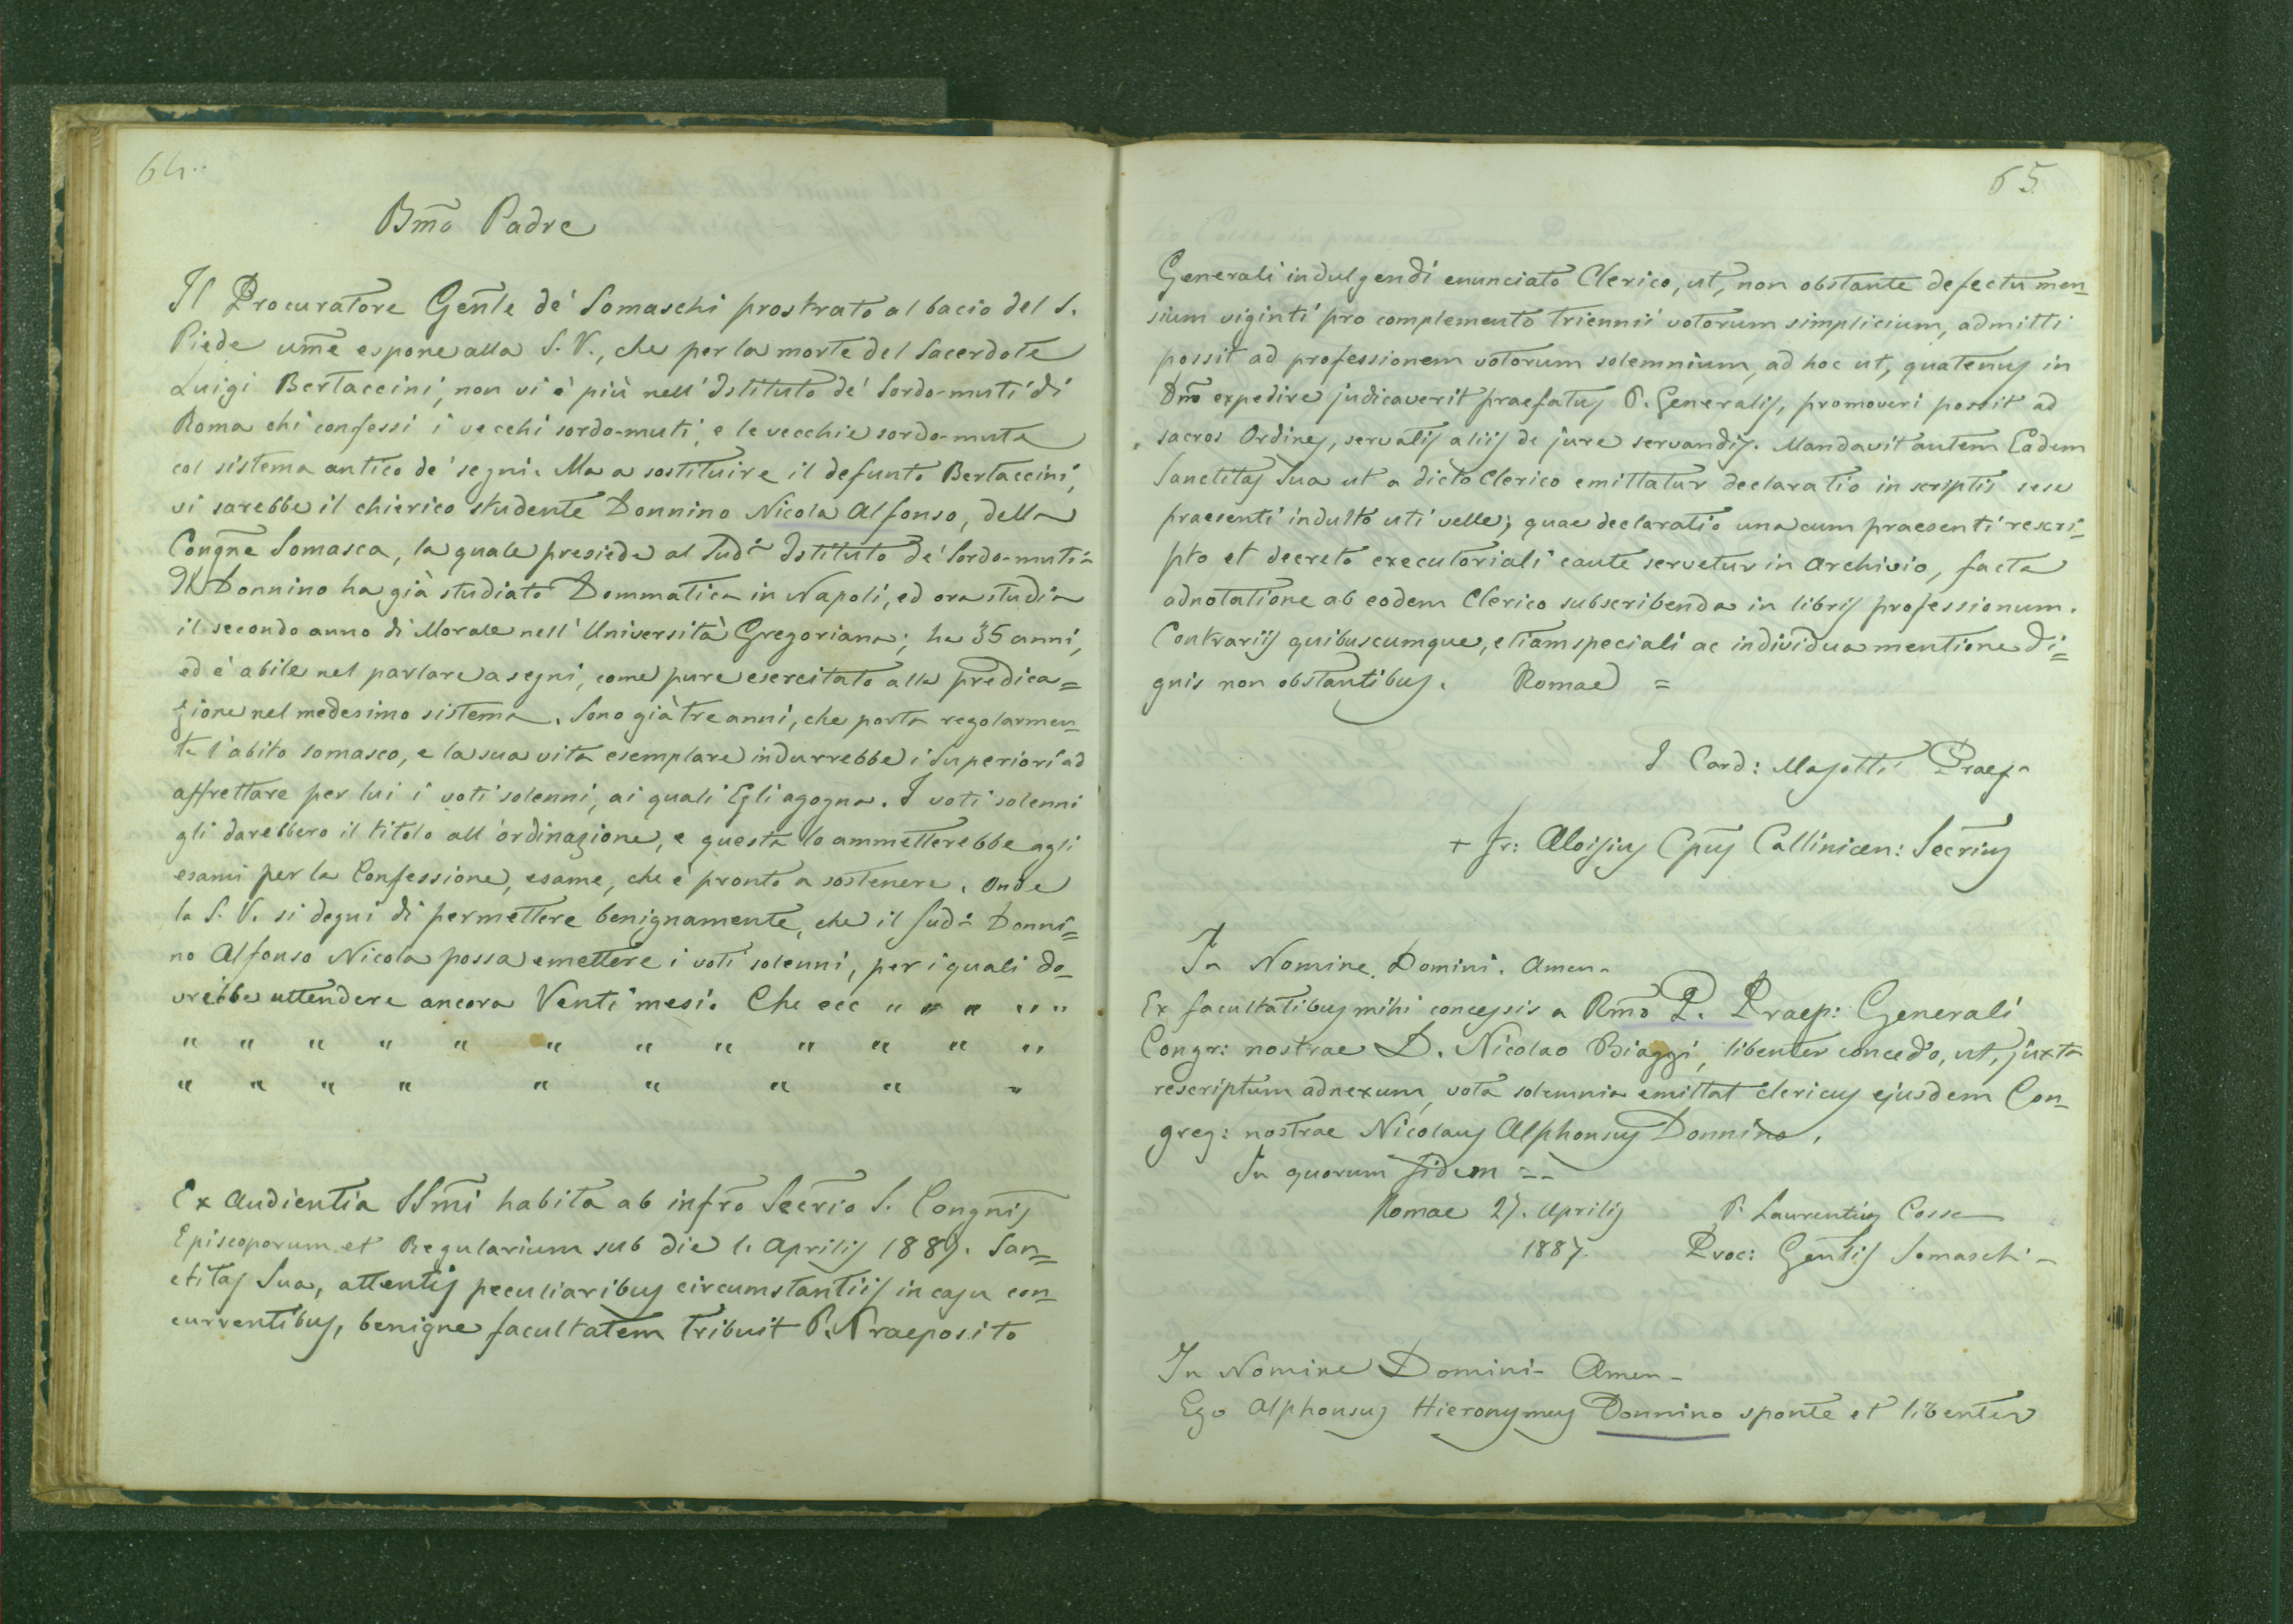 64.
Bm̃o Padre
Il Procuratore Gen̄le de' Somaschi prostrato al bacio del S.
Piede um̄e espone alla S. V., che per la morte del Sacerdote
Luigi Bertaccini, non vi è più nell' Istituto de' Sordo-muti di
Roma chi confessi i vecchi sordo-muti, e le vecchie sordo-mute
col sistema antico de' segni. Ma a sostituire il defunto Bertaccini,
vi sarebbe il chierico studente Donnino Nicola Alfonso, della
Congñe Somasca, la quale presiede al Sudº Istituto de' Sordo-muti.
Il Donnino ha già studiato Dommatica in Napoli, ed ora studia
il secondo anno di Morale nell' Università Gregoriana; ha 35 anni,
ed è abile nel parlare a segni, come pure esercitato alla predica=
zione nel medesimo sistema. Sono già tre anni, che porta regolarmen=
te l'abito somasco, e la sua vita esemplare indurrebbe i Superiori ad
affrettare per lui i voti solenni, ai quali Egli agogna. I voti solenni
gli darebbero il titolo all'ordinazione, e questa lo ammetterebbe agli
esami per la Confessione, esame, che è pronto a sostenere. Onde
la S. V. si degni di permettere benignamente, che il Sudº Donni=
no Alfonso Nicola possa emettere i voti solenni, per i quali do=
vrebbe attendere ancora Venti mesi. Che ecc " " " " "
" " " " " " " " " " " "
" " " " " " " " "
Ex Audientia SSm̃i habita ab infr̃o Secr̃io S. Congñis
Episcoporum et Regularium sub die 1. Aprilis 1887. San=
ctitas Sua, attentis peculiaribus circumstantiis in casu con=
currentibus, benigne facultatem tribuit P. Praeposito
65
Generali indulgendi enunciato Clerico, ut, non obstante defectu men=
sium viginti pro complemento triennii votorum simplicium, admitti
possit ad professionem votorum solemnium, ad hoc ut, quatenus in
Dn̄o expedire judicaverit praefatus P. Generalis, promoveri possit ad
sacros Ordines, servatis aliis de jure servandis. Mandavit autem Eadem
Sanctitas Sua ut a dicto Clerico emittatur declaratio in scriptis sese
praesenti indulto uti velle; quae declaratio una cum praesenti rescri=
pto et decreto executoriali caute servetur in Archivio, facta
adnotatione ab eodem Clerico subscribenda in libris professionum.
Contrariis quibuscumque, etiam speciali ac individua mentione di=
gnis non obstantibus. Romae =
I Card: Masotti Praef.
+ Fr: Aloisius Ep̃us Callinicen: Secr̃ius
In Nomine Domini. Amen.
Ex facultatibus mihi concessis a Rm̃o P. Praep: Generali
Congr: nostrae D. Nicolao Biaggi, libenter concedo, ut, juxta
rescriptum adnexum, vota solemnia emittat clericus ejusdem Con=
greg: nostrae Nicolaus Alphonsus Donnino.
In quorum fidem =
Romae 27. Aprilis P. Laurentius Cossa
1887. Proc: Gen̄lis Somasch.
In Nomine Domini - Amen -
Ego Alphonsus Hieronymus Donnino sponte et libenter